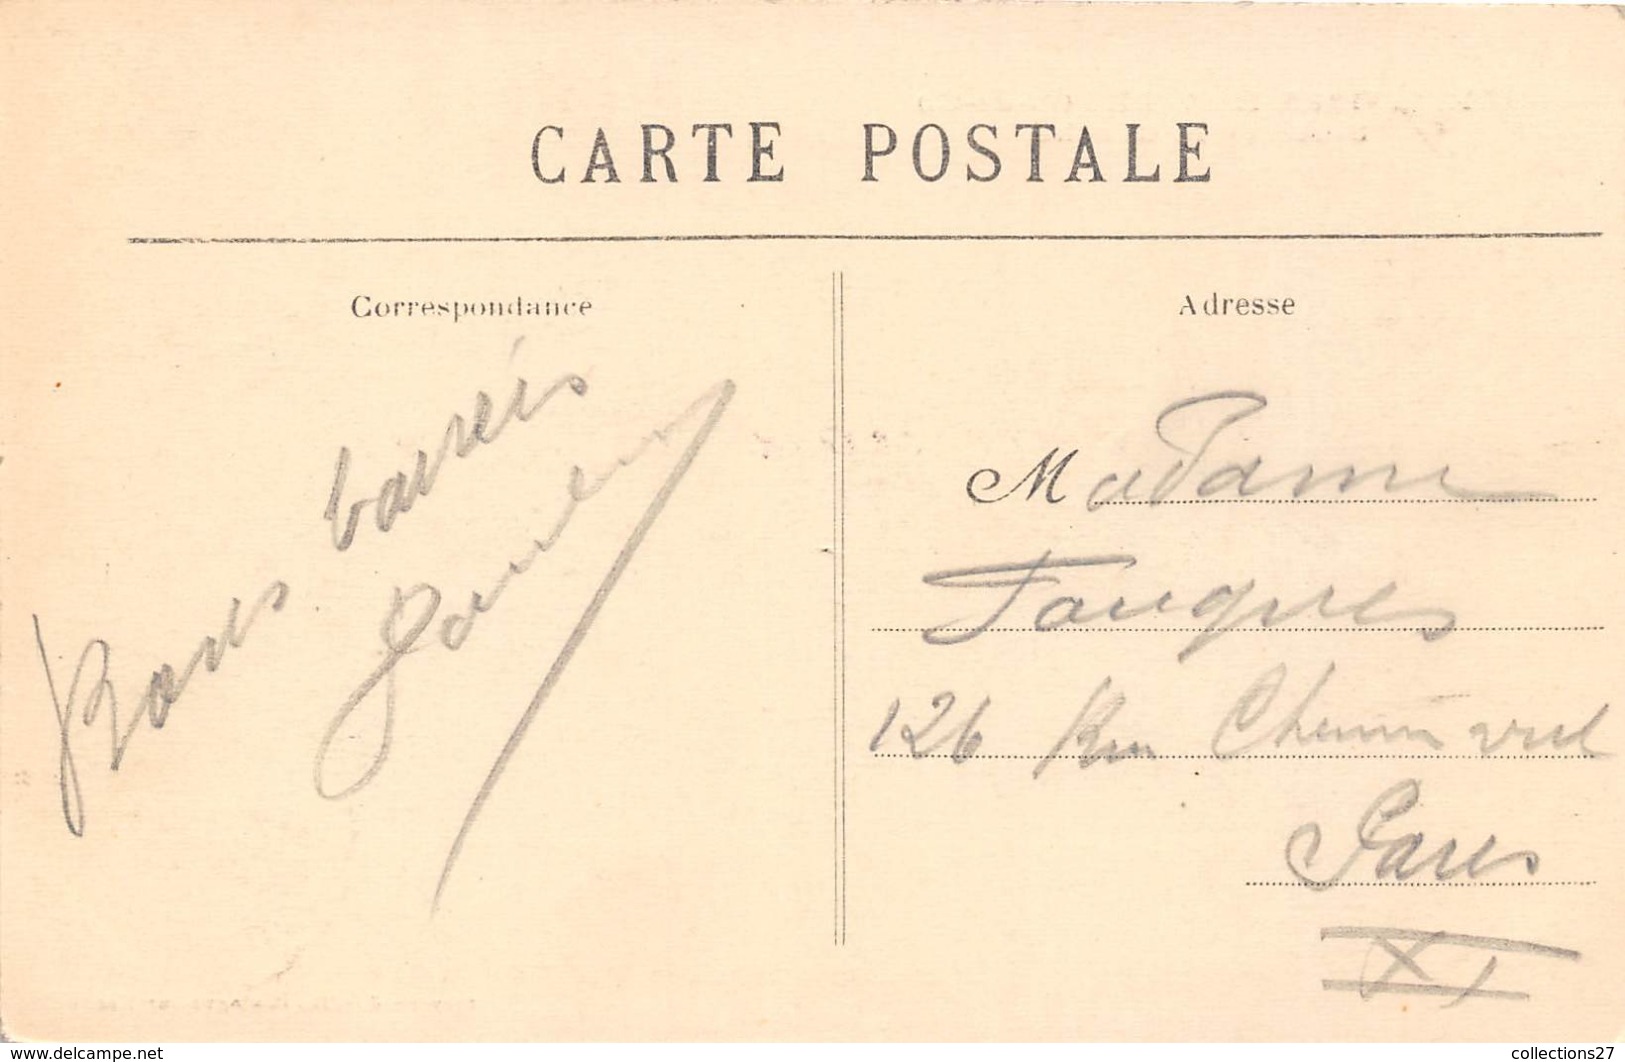 CARTE POSTALE
Correspondance
Bons baisers
Adresse
Madame
Fouques
126 Rue Chemin vert
Paris
XI
www.delcampe.net
collections27